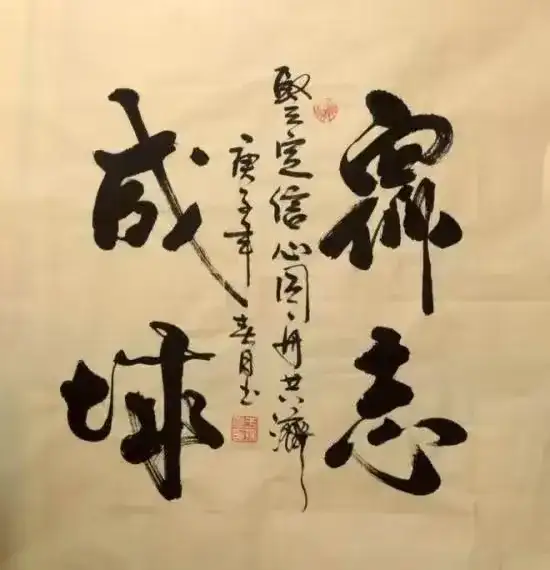 眾志
成城
坚定信心同舟共濟
庚子年春月书